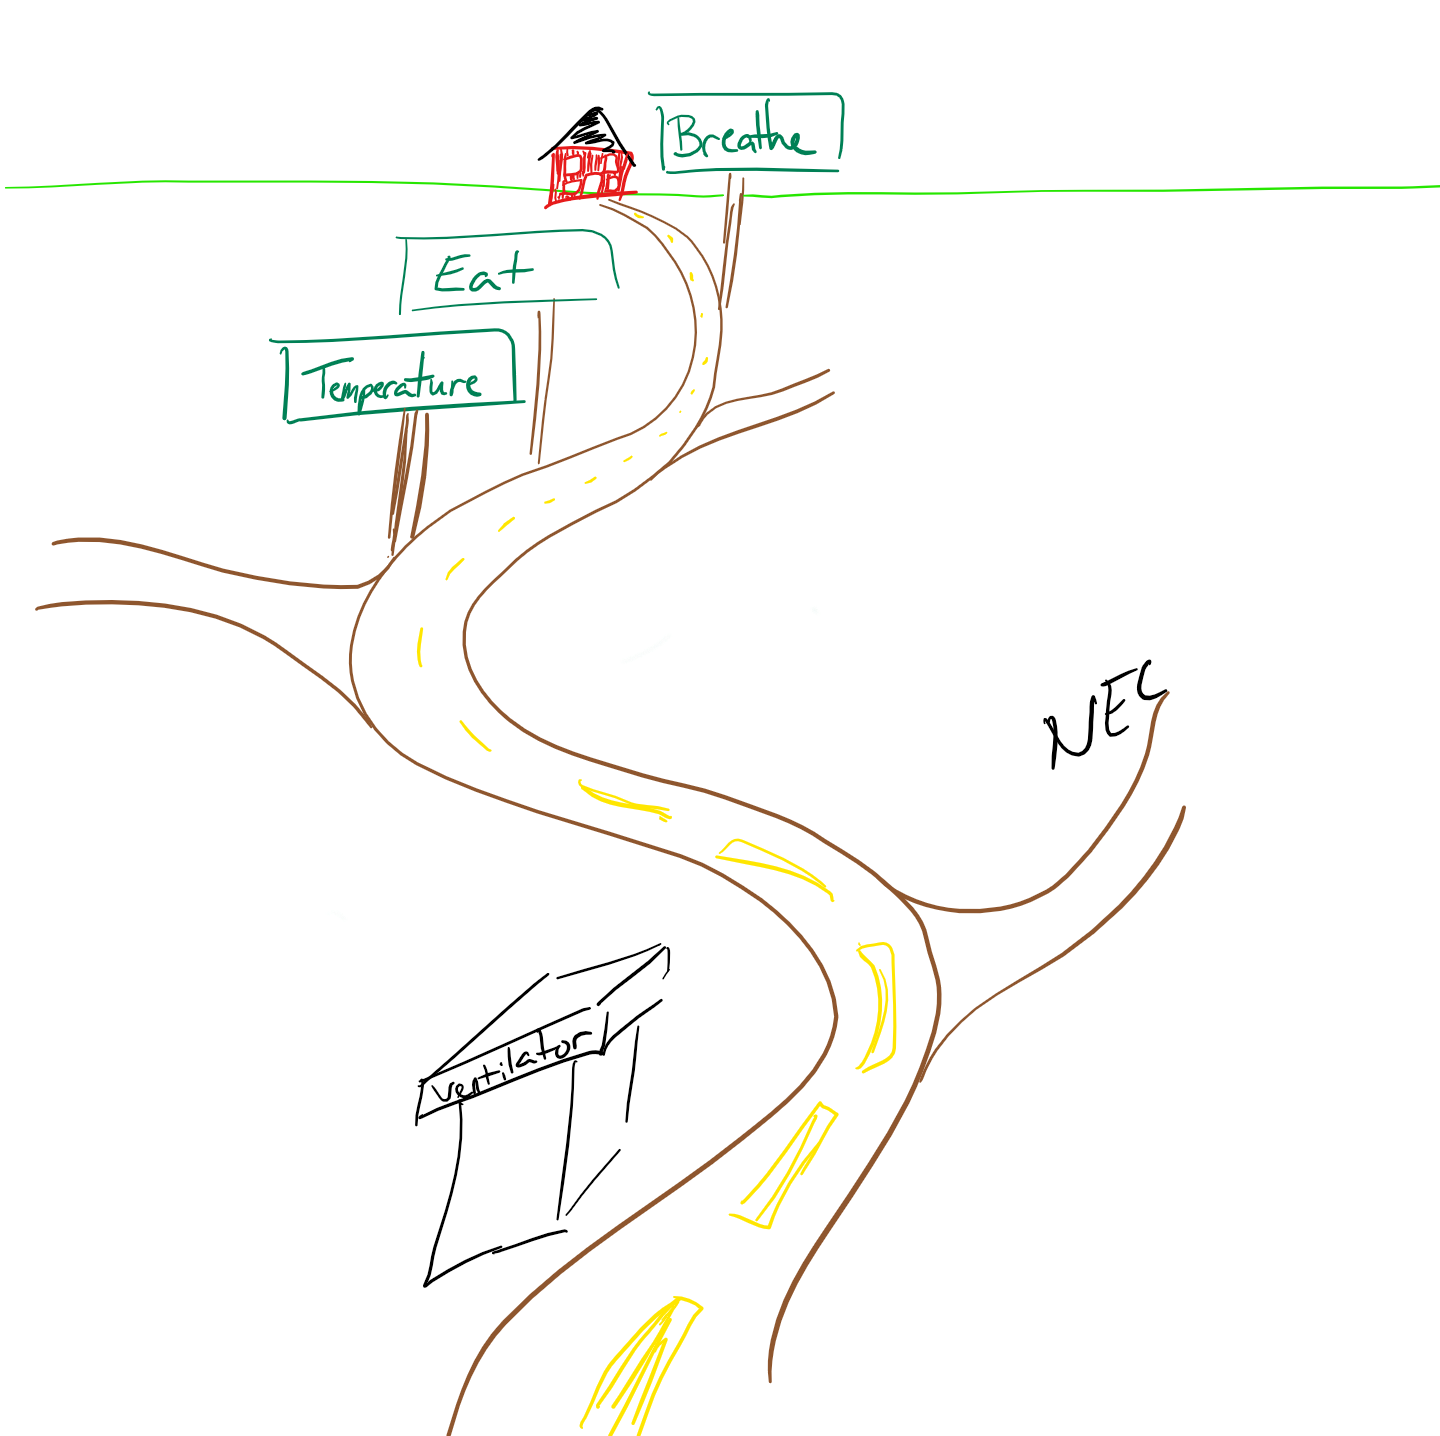 Breathe
Eat
Temperature
NEC
Ventilator